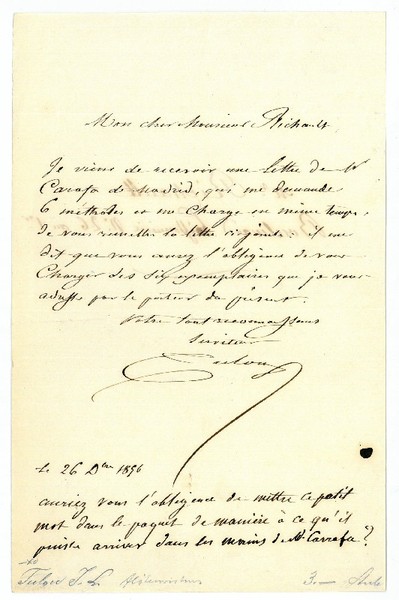 Mon cher Monsieur Richault
Je viens de recevoir une lettre de Mr
Carafa de Madrid, qui me demande
6 méthodes et me charge en même temps,
de vous remettre la lettre ci jointe. il me
dit que vous aurez l'obligeance de vous
charger des six exemplaires que je vous
adresse par le porteur du présent.
Votre tout reconnaissant
Serviteur
Tulou
Le 26 Dbre 1856
auriez vous l'obligeance de mettre ce petit
mot dans le paquet de manière à ce qu'il
puisse arriver dans les mains de Mr Carrafa?
Tulou J. L.
3.—